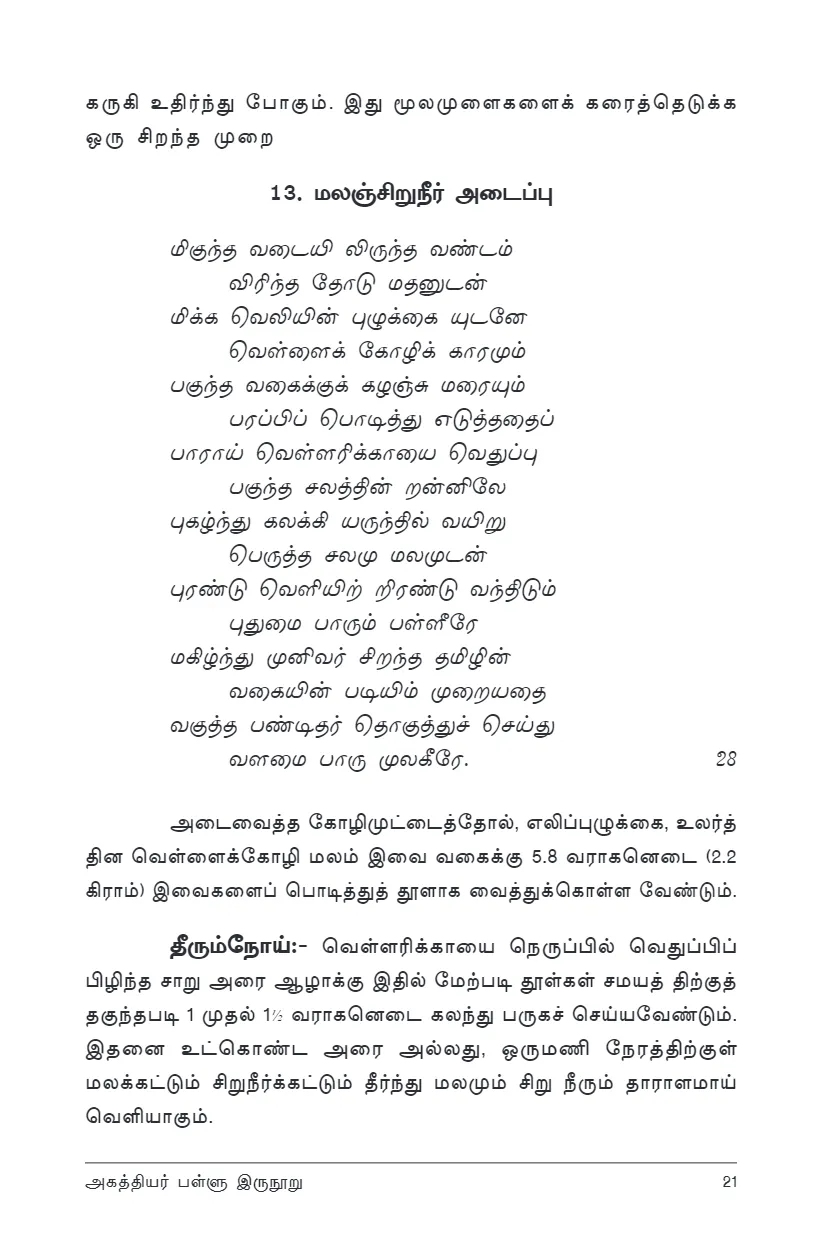 கருகி உதிர்ந்து போகும். இது மூலமுளைகளைக் கரைத்தெடுக்க
ஒரு சிறந்த முறை
13. மலஞ்சிறுநீர் அடைப்பு
மிகுந்த வடையி லிருந்த வண்டம்
விரிந்த தோடு மதனுடன்
மிக்க வெலியின் புழுக்கை யுடனே
வெள்ளைக் கோழிக் காரமும்
பகுந்த வகைக்குக் கழஞ்சு மரையும்
பரப்பிப் பொடித்து எடுத்ததைப்
பாராய் வெள்ளரிக்காயை வெதுப்பு
பகுந்த சலத்தின் றன்னிலே
புகழ்ந்து கலக்கி யருந்தில் வயிறு
பெருத்த சலமு மலமுடன்
புரண்டு வெளியிற் றிரண்டு வந்திடும்
புதுமை பாரும் பள்ளீரே
மகிழ்ந்து முனிவர் சிறந்த தமிழின்
வகையின் படியிம் முறையதை
வகுத்த பண்டிதர் தொகுத்துச் செய்து
வளமை பாரு முலகீரே. 28
அடைவைத்த கோழிமுட்டைத்தோல், எலிப்புழுக்கை, உலர்த்
தின வெள்ளைக்கோழி மலம் இவை வகைக்கு 5.8 வராகனெடை (2.2
கிராம்) இவைகளைப் பொடித்துத் தூளாக வைத்துக்கொள்ள வேண்டும்.
தீரும்நோய்:- வெள்ளரிக்காயை நெருப்பில் வெதுப்பிப்
பிழிந்த சாறு அரை ஆழாக்கு இதில் மேற்படி தூள்கள் சமயத் திற்குத்
தகுந்தபடி 1 முதல் 1½ வராகனெடை கலந்து பருகச் செய்யவேண்டும்.
இதனை உட்கொண்ட அரை அல்லது, ஒருமணி நேரத்திற்குள்
மலக்கட்டும் சிறுநீர்க்கட்டும் தீர்ந்து மலமும் சிறு நீரும் தாராளமாய்
வெளியாகும்.
அகத்தியர் பள்ளு இருநூறு 21